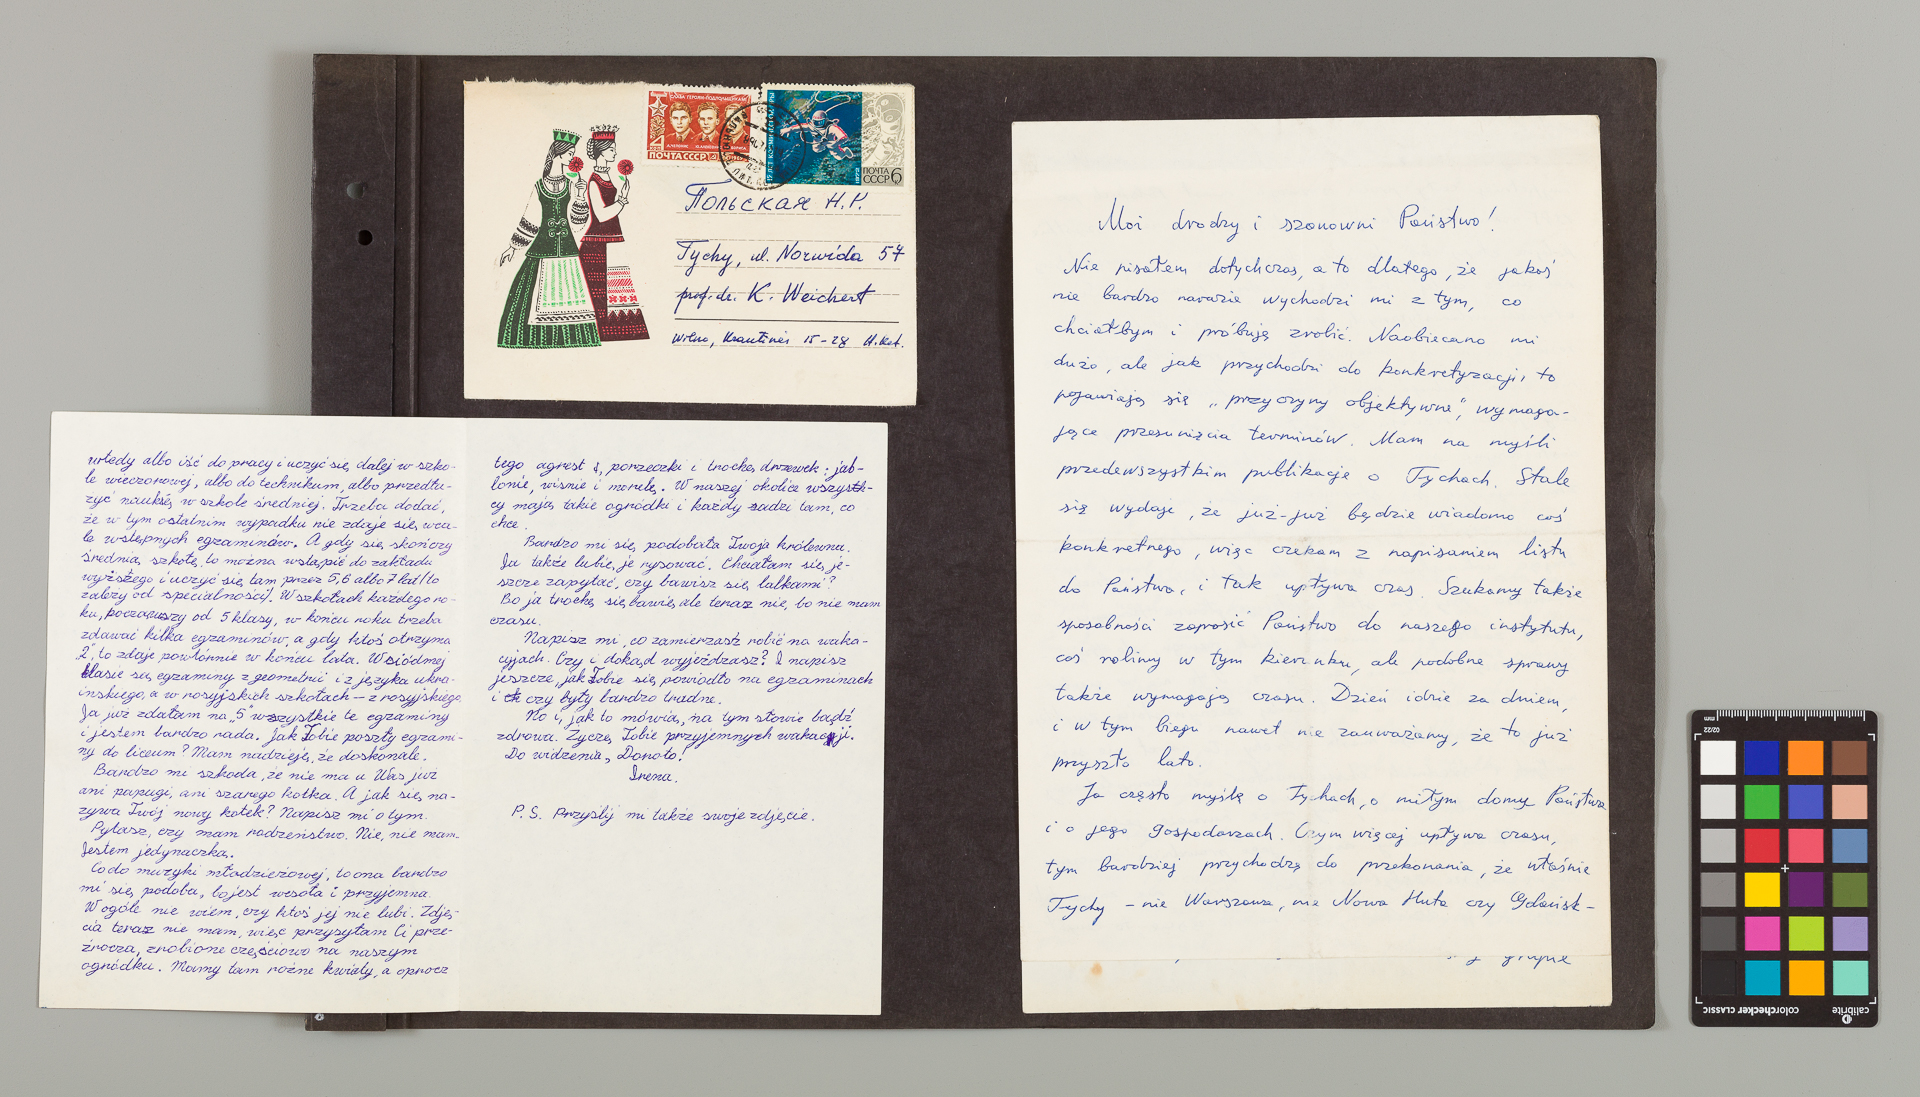 СЛАВА ГЕРОЯМ-ПОДПОЛЬЩИКАМ
4 КОП
ПОЧТА СССР
15 ЛЕТ КОСМИЧЕСКОЙ ЭРЫ
1972
ПОЧТА
СССР 6
Польская Н.Р.
Tychy, ul. Norwida 57
prof. dr. K. Weichert
Wilno, Krautines 15-28
wtedy albo iść do pracy i uczyć się dalej w szko-
le wieczorowej, albo do technikum, albo przedłu-
żyć naukę w szkole średniej. Trzeba dodać,
że w tym ostatnim wypadku nie zdaje się wca-
le wstępnych egzaminów. A gdy się skończy
średnią szkołę, to można wstąpić do zakładu
wyższego i uczyć się tam przez 5, 6 albo 7 lat (to
zależy od specialności). W szkołach każdego ro-
ku, począwszy od 5 klasy, w końcu roku trzeba
zdawać kilka egzaminów, a gdy ktoś otrzyma
„2”, to zdaje powtórnie w końcu lata. W siódmej
klasie są egzaminy z geometrii i z języka ukra-
ińskiego, a w rosyjskich szkołach – z rosyjskiego.
Ja już zdałam na „5” wszystkie te egzaminy
i jestem bardzo rada. Jak Tobie poszły egzami-
ny do liceum? Mam nadzieję, że doskonale.
Bardzo mi szkoda, że nie ma u Was już
ani papugi, ani szarego kotka. A jak się na-
zywa Twój nowy kotek? Napisz mi o tym.
Pytasz, czy mam rodzeństwo. Nie, nie mam.
Jestem jedynaczką.
Co do muzyki młodzieżowej, to ona bardzo
mi się podoba, bo jest wesoła i przyjemna.
W ogóle nie wiem, czy ktoś jej nie lubi. Zdję-
cia teraz nie mam, więc przysyłam Ci prze-
źrocza, zrobione częściowo na naszym
ogródku. Mamy tam różne kwiaty, a oprócz
tego agrest, porzeczki i trochę drzewek: jab-
łonie, wiśnie i morelę. W naszej okolice wszys-
cy mają takie ogródki i każdy sadzi tam, co
chce.
Bardzo mi się podobała Twoja królewna.
Ja także lubię je rysować. Chciałam się je-
szcze zapytać, czy bawisz się lalkami?
Bo ja trochę się bawię, ale teraz nie, bo nie mam
czasu.
Napisz mi, co zamierzasz robić na waka-
cyjach. Czy i dokąd wyjeżdżasz? I napisz
jeszcze, jak Tobie się powiodło na egzaminach
i czy były bardzo trudne.
No i, jak to mówią, na tym słowie bądź
zdrowa. Życzę Tobie przyjemnych wakacyji.
Do widzenia, Donoto!
Irena.
P.S. Przyślij mi także swoje zdjęcie.
Moi drodzy i szanowni Państwo!
Nie pisałem dotychczas, a to dlatego, że jakoś
nie bardzo narazie wychodzi mi z tym, co
chciałbym i próbuję zrobić. Naobiecano mi
dużo, ale jak przychodzi do konkretyzacji, to
pojawiają się „przyczyny objektywne”, wymaga-
jące przesunięcia terminów. Mam na myśli
przedewszystkim publikację o Tychach. Stale
się wydaje, że już-już będzie wiadomo coś
konkretnego, więc czekam z napisaniem listu
do Państwa, i tak upływa czas. Szukamy także
sposobności zaprosić Państwo do naszego instytutu,
coś robimy w tym kierunku, ale podobne sprawy
także wymagają czasu. Dzień idzie za dniem,
i w tym biegu nawet nie zauważamy, że to już
przyszło lato.
Ja często myślę o Tychach, o miłym domu Państwa
i o jego gospodarzach. Czym więcej upływa czasu,
tym bardziej przychodzę do przekonania, że właśnie
Tychy – nie Warszawa, nie Nowa Huta czy Gdańsk –
mm
02/22
calibrite
colorchecker CLASSIC